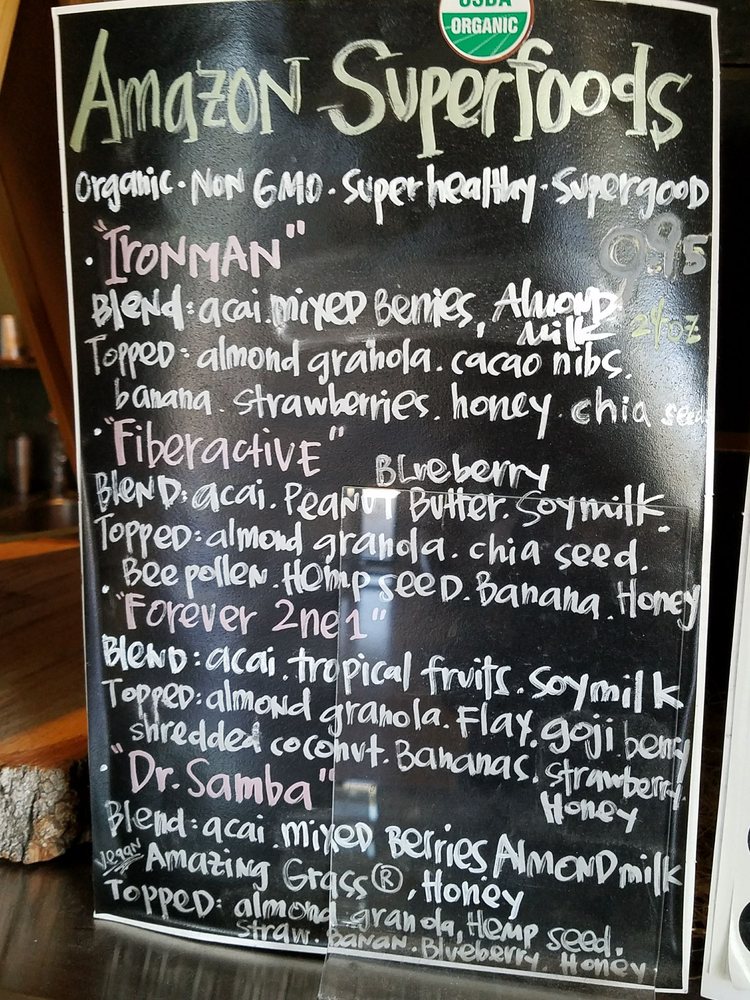 USDA
ORGANIC
Amazon Superfoods
Organic · Non GMO · Super healthy · Supergood
· "IRONMAN" 9.95
Blend: acai. mixed Berries, Almond
milk 24oz
Topped: almond granola. cacao nibs.
banana. strawberries. honey. chia seed
· "FiberactivE"
BLueberry
BLEND: acai. PEANUT Butter. Soymilk.
Topped: almond granola. chia seed.
Bee pollen. Hemp seed. Banana. Honey
· "Forever 2ne1"
BLEND: acai. tropical fruits. Soymilk
Topped: almond granola. Flax. goji berry
shredded coconut. Bananas. strawberry.
Honey
· "Dr. Samba"
Blend: acai. mixed Berries ALMOND milk
Vegan Amazing Grass®, Honey
Topped: almond granola, Hemp seed,
straw. Banan. Blueberry. Honey.